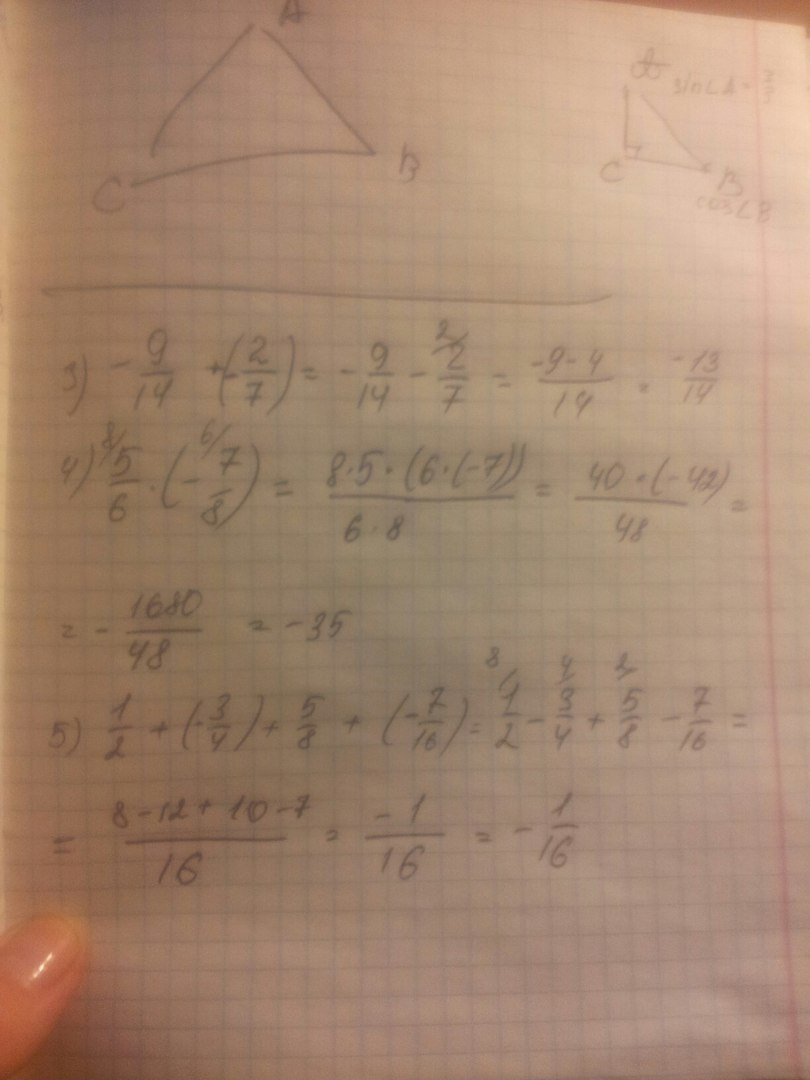 A
C B
sin∠A =
C B
cos∠B
3) -9/14 + (-2/7) = -9/14 - 2/7 = (-9-4)/14 = -13/14
4) 5/6 · (-7/8) = (8·5·(6·(-7)))/(6·8) = (40·(-42))/48 =
= -1680/48 = -35
8 4 2
5) 1/2 + (-3/4) + 5/8 + (-7/16) = 1/2 - 3/4 + 5/8 - 7/16 =
= (8-12+10-7)/16 = -1/16 = -1/16